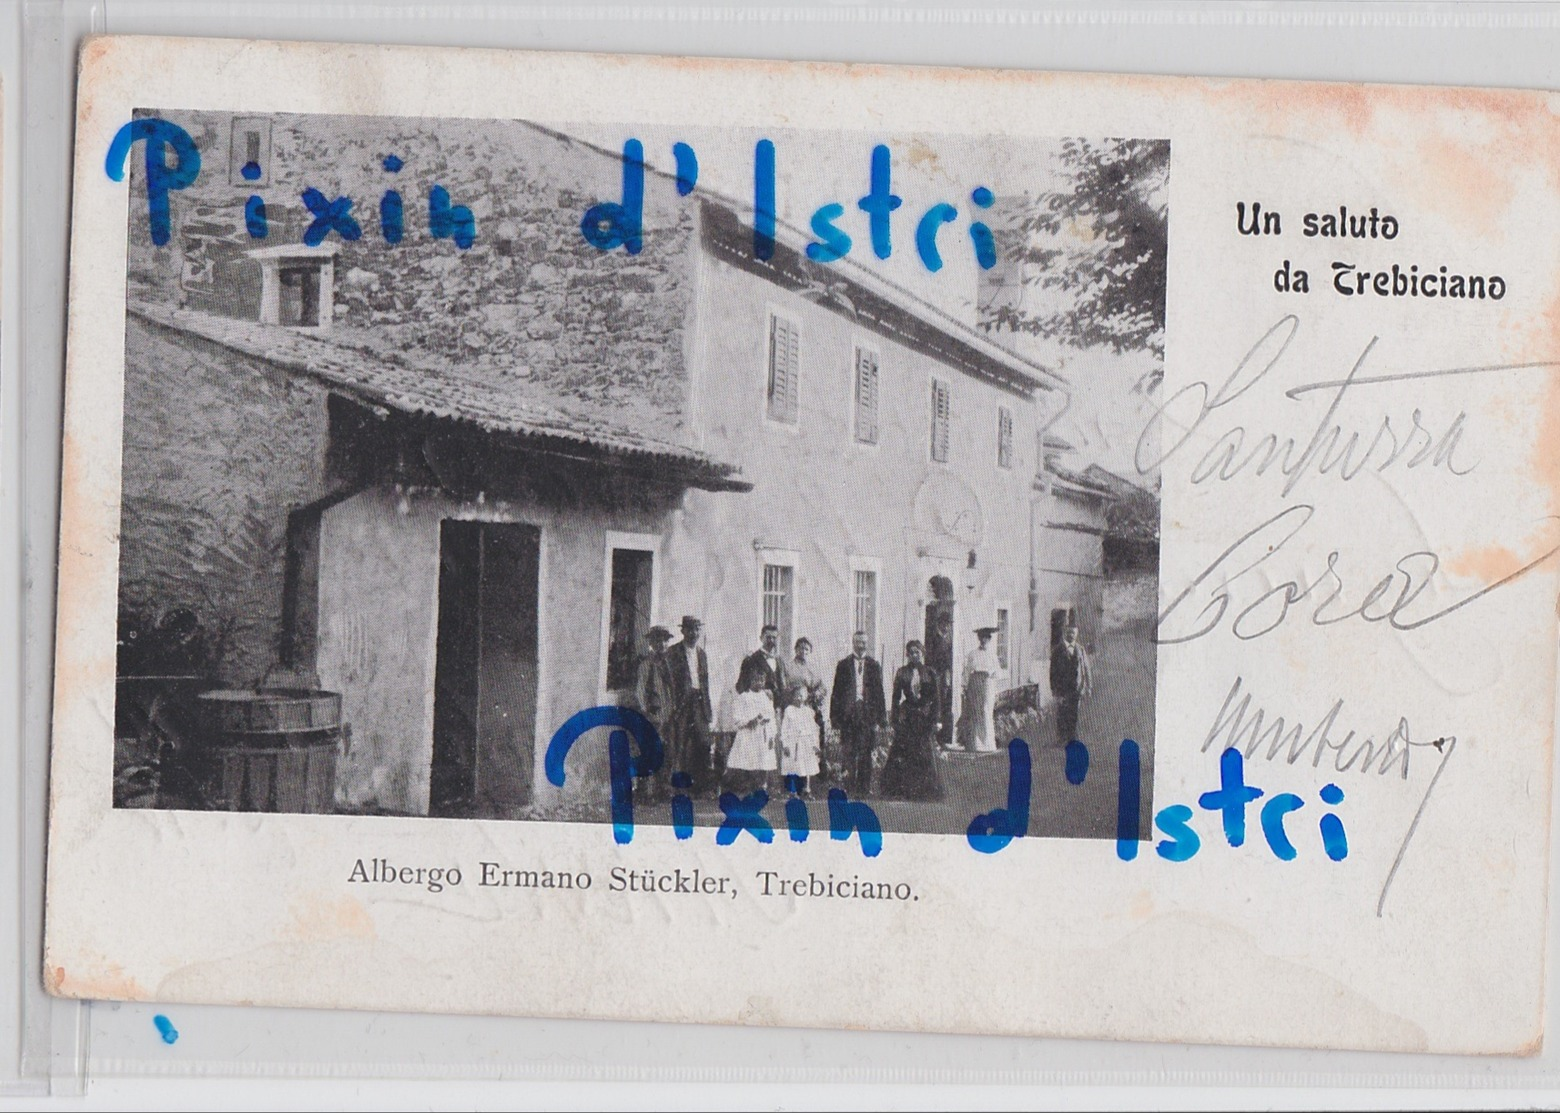 Pixin d'Istri
Un saluto
da Trebiciano
Umberto
Pixin d'Istri
Albergo Ermano Stückler, Trebiciano.